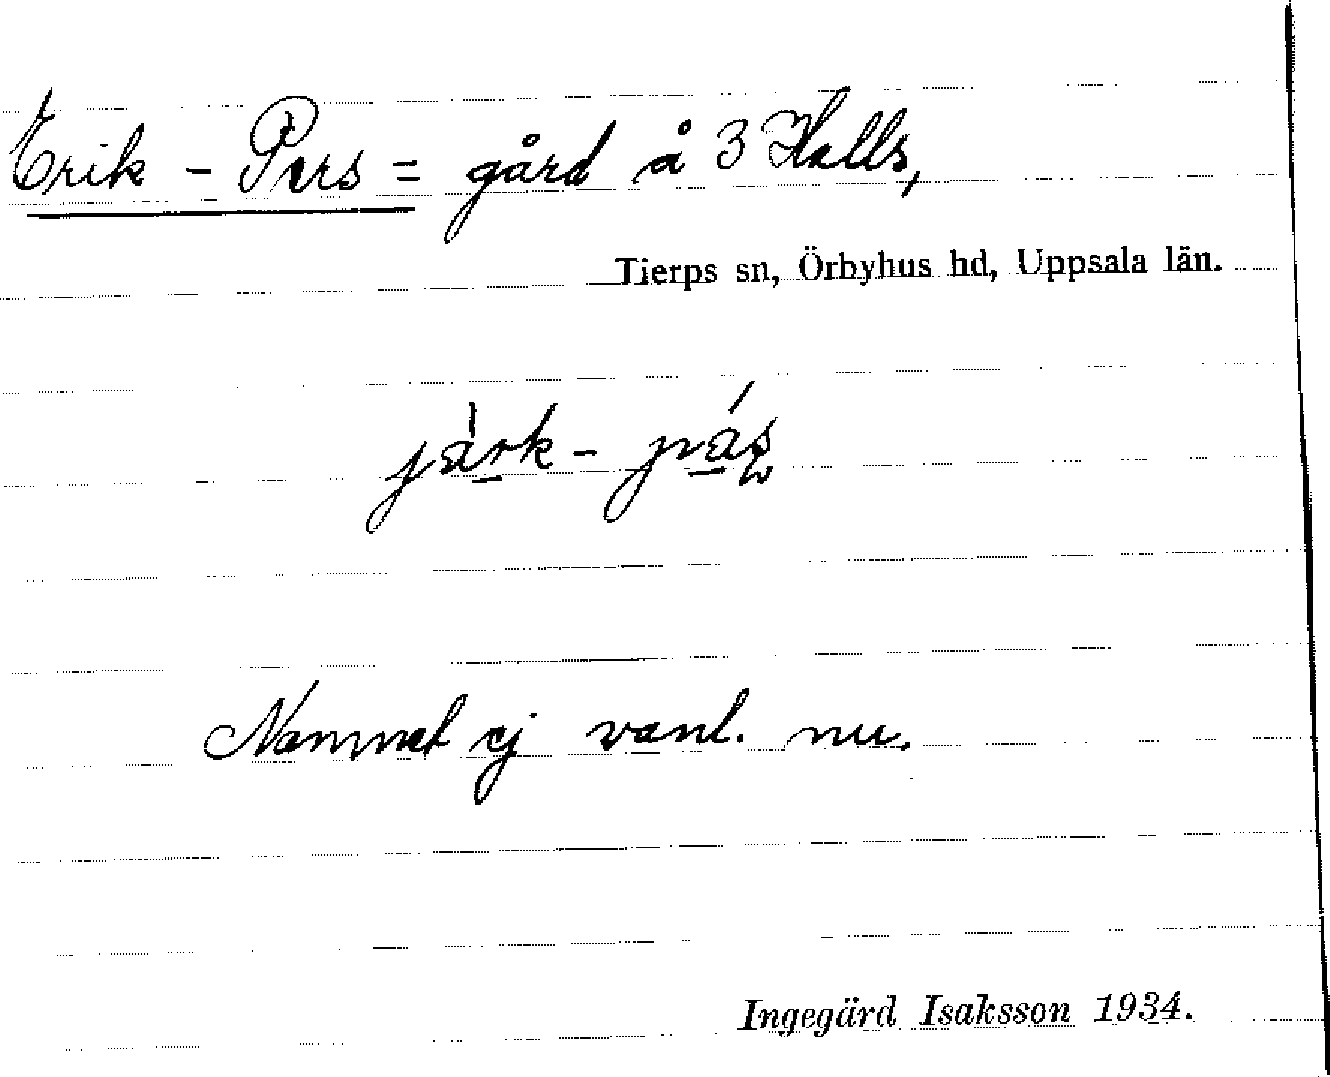 Erik - Pers = gård å 3 Halls,
Tierps sn, Örbyhus hd, Uppsala län.
Namnet ej vanl. nu.
Ingegärd Isaksson 1934.